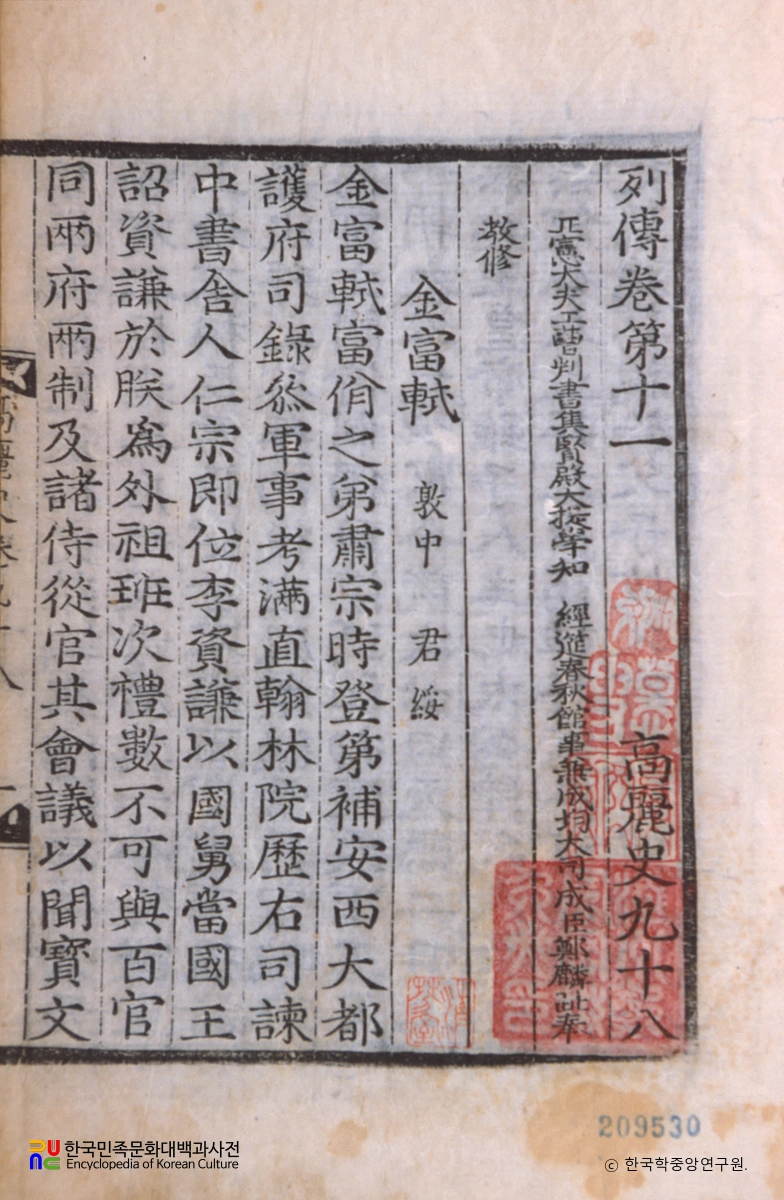 列傳卷第十一 高麗史九十八
正憲大夫工曹判書集賢殿大提學知 經筵春秋館事兼成均大司成臣鄭麟趾奉
敎修
金富軾 敦中 君綏
金富軾富佾之弟肅宗時登第補安西大都
護府司錄叅軍事考滿直翰林院歷右司諫
中書舍人仁宗即位李資謙以國舅當國王
詔資謙於朕爲外祖班次禮數不可與百官
同兩府兩制及諸侍從官其會議以聞寶文
高麗史卷九十八 一
209530
한국민족문화대백과사전
Encyclopedia of Korean Culture
ⓒ 한국학중앙연구원.